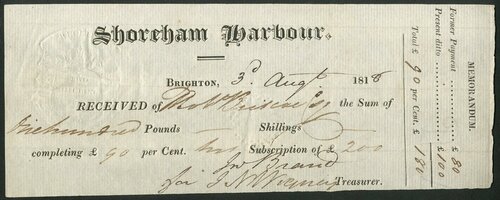 Shoreham Harbour.
BRIGHTON, 3d. Augt. 1818
RECEIVED of Thos. Briscoe Esq the Sum of
One hundred Pounds Shillings
completing £ 90 per Cent. his Subscription of £ 200
Jno Brand
for Treasurer.
MEMORANDUM.
Former Payment £ 80
Present ditto £ 100
Total £ 90 per Cent. £ 180